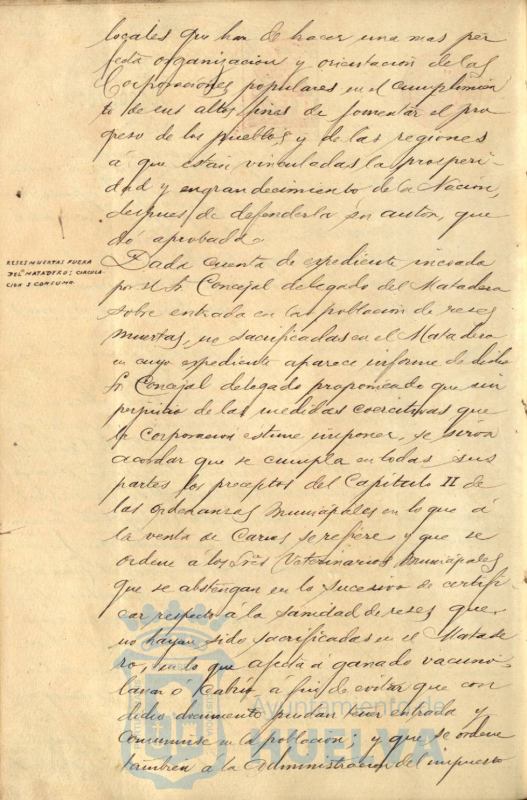 locales que han de hacer una mas per
fecta organizacion y orientacion de las
Corporaciones populares en el cumplimien
to de sus altos fines de fomentar el pro
greso de los pueblos y de las regiones
á que están vinculadas la prosperi-
dad y engrandecimiento de la Nación,
despues de defenderla su autor, que
dó aprobada.
RESES MUERTAS FUERA
DEL MATADERO; CIRCULA-
CION Y CONSUMO.
Dada cuenta de expediente incoado
por el Sr Concejal delegado del Matadero
sobre entrada en la poblacion de reses
muertas, no sacrificadas en el Matadero
en cuyo expediente aparece informe de dicho
Sr Concejal delegado proponiendo que sin
perjuicio de las medidas coercitivas que
la Corporacion estime imponer, se sirva
acordar que se cumpla en todas sus
partes los preceptos del Capítulo II de
las ordenanzas Municipales en lo que á
la venta de Carnes se refiere y que se
ordene á los Sres Veterinarios Municipales
que se abstengan en lo sucesivo de certifi
car respecto á la sanidad de reses que
no hayan sido sacrificadas en el Matade
ro, en lo que afecta á ganado vacuno
lanar ó Cabrío á fin de evitar que con
dicho documento puedan tener entrada y
consumirse en la poblacion; y que se ordene
tambien á la Administracion del impuesto
Ayuntamiento de
HUELVA